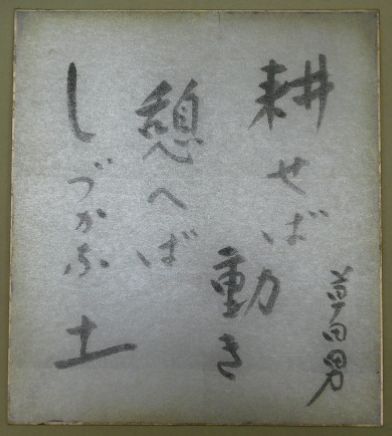 耕せば
動き
憩へば
しづかな土
草田男